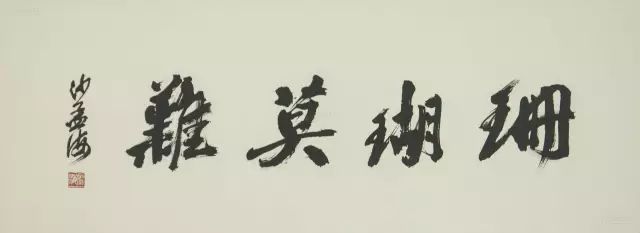 珊瑚莫難
沙孟海